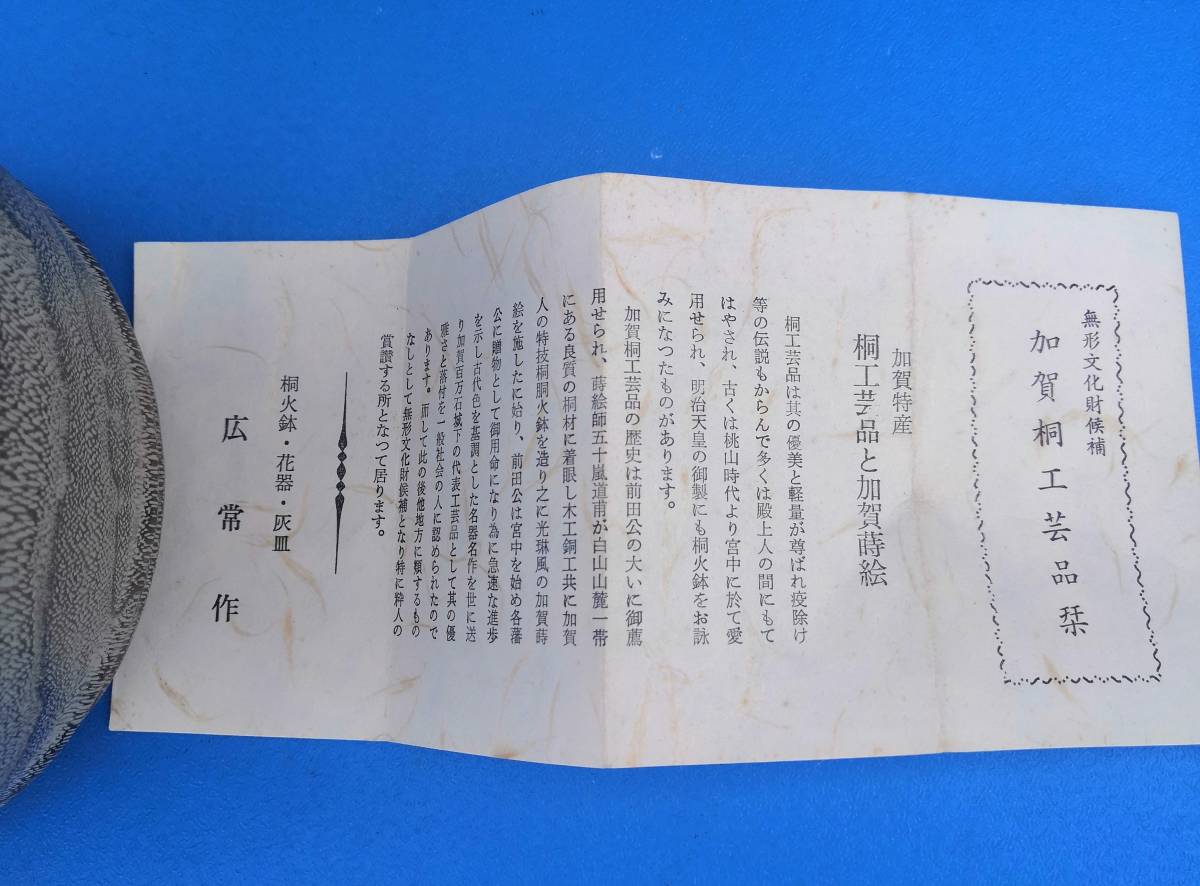 無形文化財候補
加賀桐工芸品栞
加賀特産
桐工芸品と加賀蒔絵
桐工芸品は其の優美と軽量が尊ばれ疫除け
等の伝説もからんで多くは殿上人の間にもて
はやされ、古くは桃山時代より宮中に於て愛
用せられ、明治天皇の御製にも桐火鉢をお詠
みになつたものがあります。
加賀桐工芸品の歴史は前田公の大いに御薦
用せられ、蒔絵師五十嵐道甫が白山山麓一帯
にある良質の桐材に着眼し木工銅工共に加賀
人の特技桐胴火鉢を造り之に光琳風の加賀蒔
絵を施したに始り、前田公は宮中を始め各藩
公に贈物として御用命になり為に急速な進歩
を示し古代色を基調とした名器名作を世に送
り加賀百万石城下の代表工芸品として其の優
雅さと落付を一般社会の人に認められたので
あります。而して此の後他地方に類するもの
なしとして無形文化財候補となり特に粋人の
賞讃する所となつて居ります。
桐火鉢・花器・灰皿
広常作